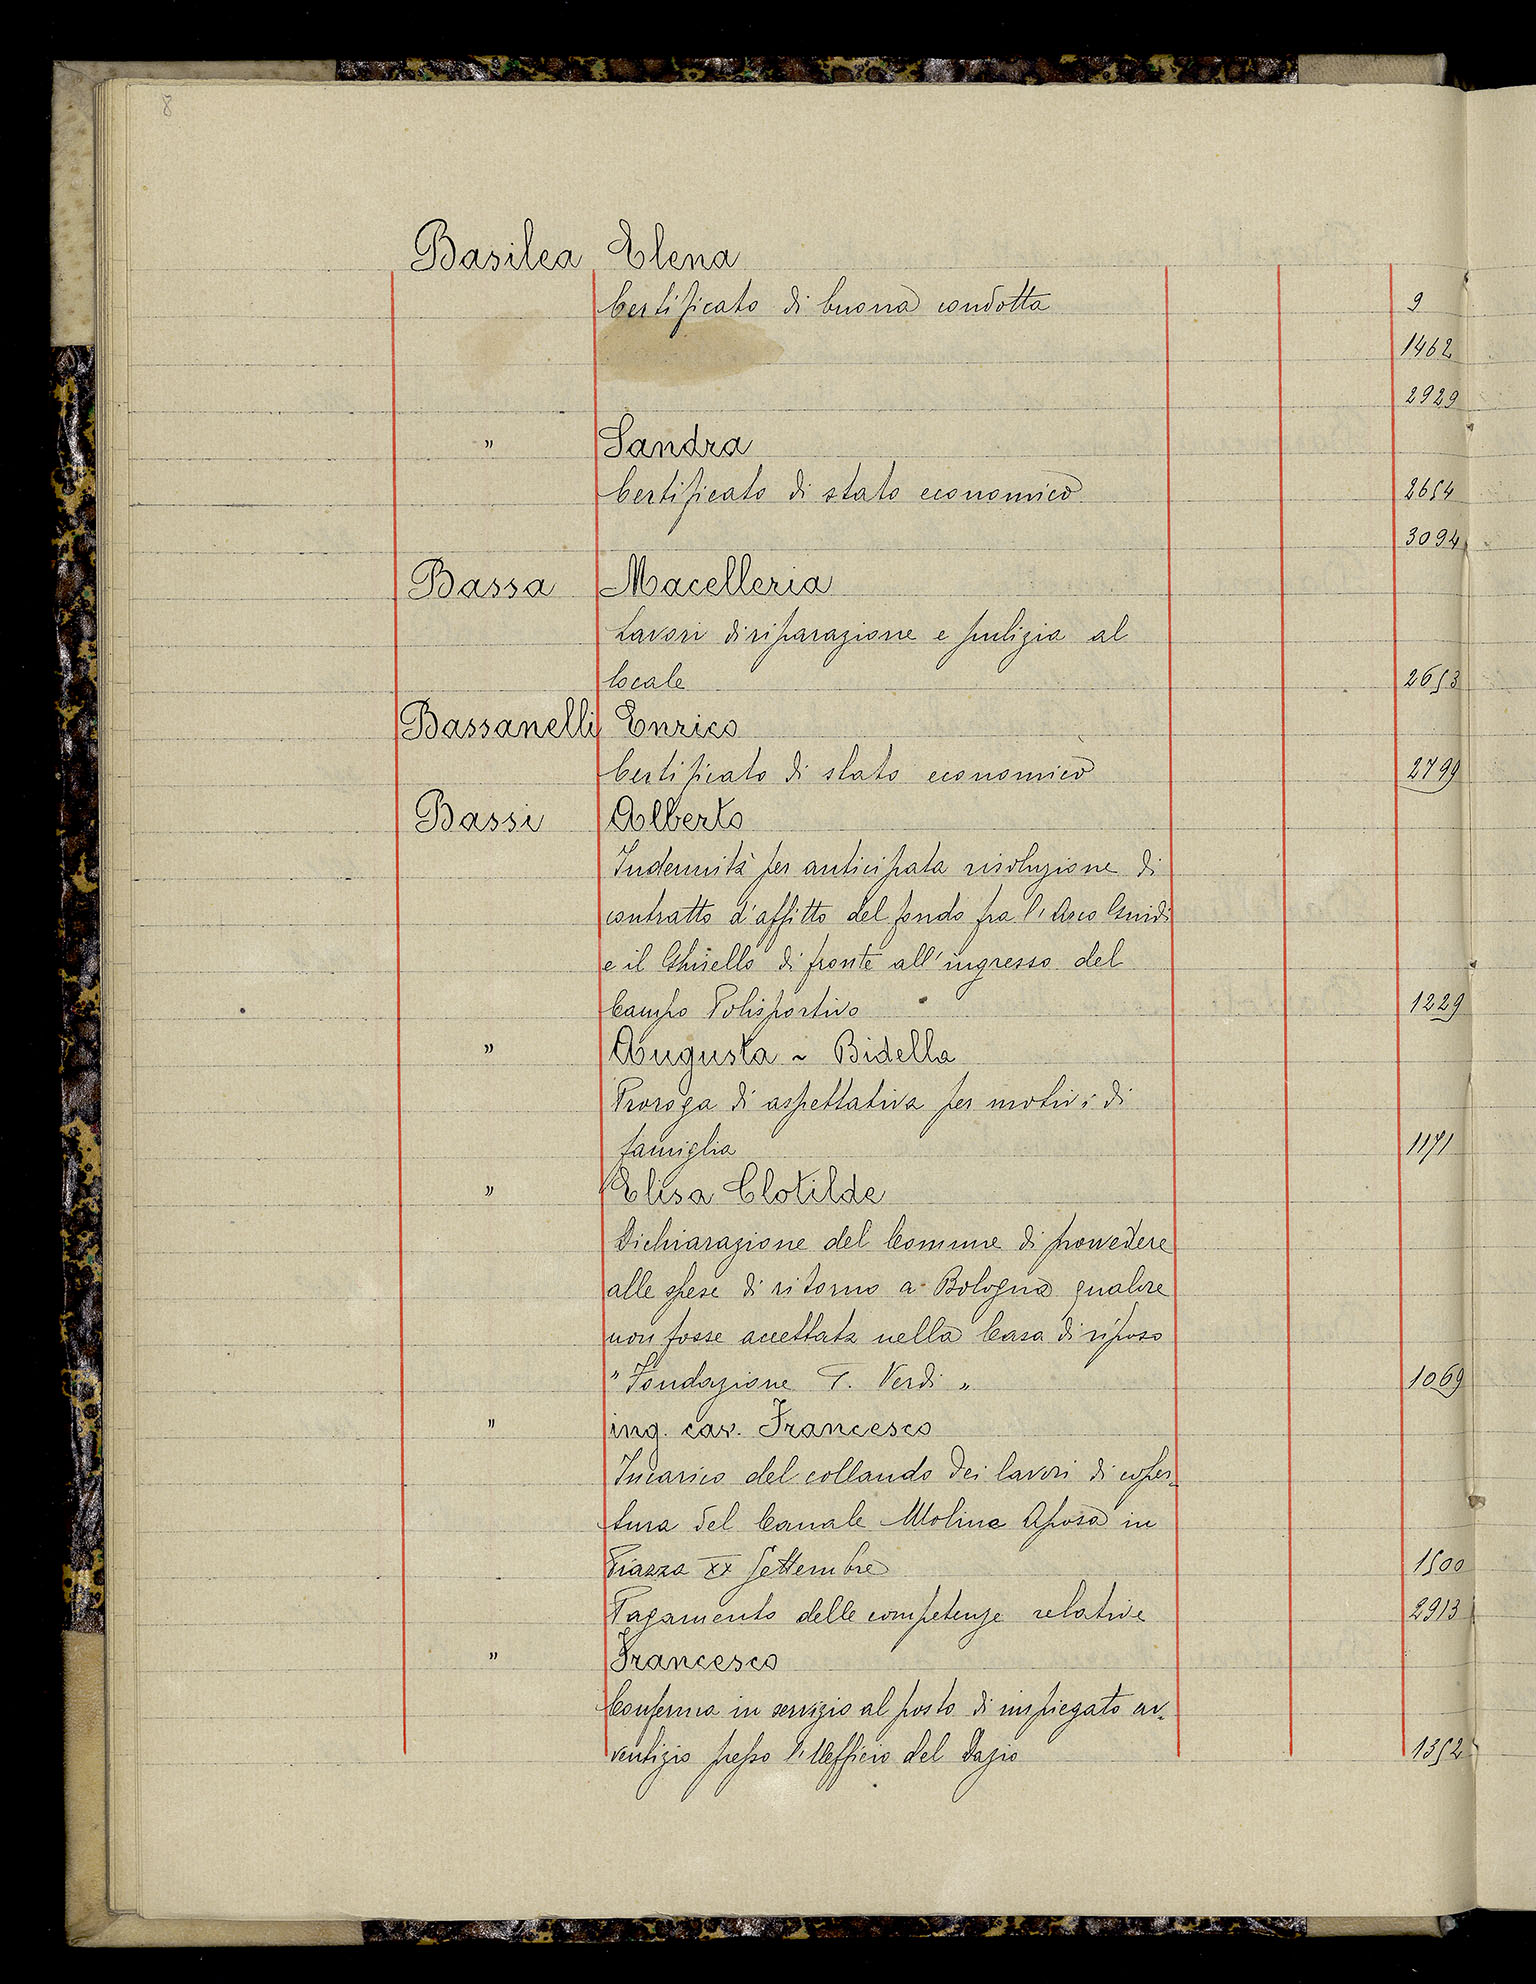 8
Basilea Elena
Certificato di buona condotta 9
1462
2929
" Sandra
Certificato di stato economico 2654
3094
Bassa Macelleria
Lavori di riparazione e pulizia al
locale 2653
Bassanelli Enrico
Certificato di stato economico 2799
Bassi Alberto
Indennità per anticipata risoluzione di
contratto d'affitto del fondo fra l'Arco Guidi
e il Ghisello di fronte all'ingresso del
Campo Polisportivo 1229
" Augusta ~ Bidella
Proroga di aspettativa per motivi di
famiglia 1171
" Elisa Clotilde
Dichiarazione del Comune di provvedere
alle spese di ritorno a Bologna qualore
non fosse accettata nella Casa di riposo
"Fondazione G. Verdi„ 1069
" ing. cav. Francesco
Incarico del collaudo dei lavori di coper-
tura del Canale Moline Aposa in
Piazza XX Settembre 1500
Pagamento delle competenze relative 2913
" Francesco
Conferma in servizio al posto di impiegato av-
ventizio presso l'Ufficio del Dazio 1352